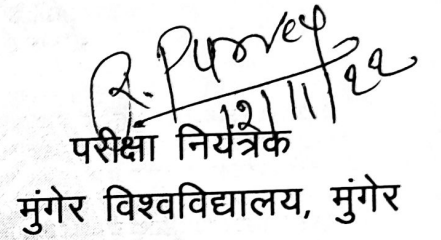 12/11/22
परीक्षा नियंत्रक
मुंगेर विश्वविद्यालय, मुंगेर